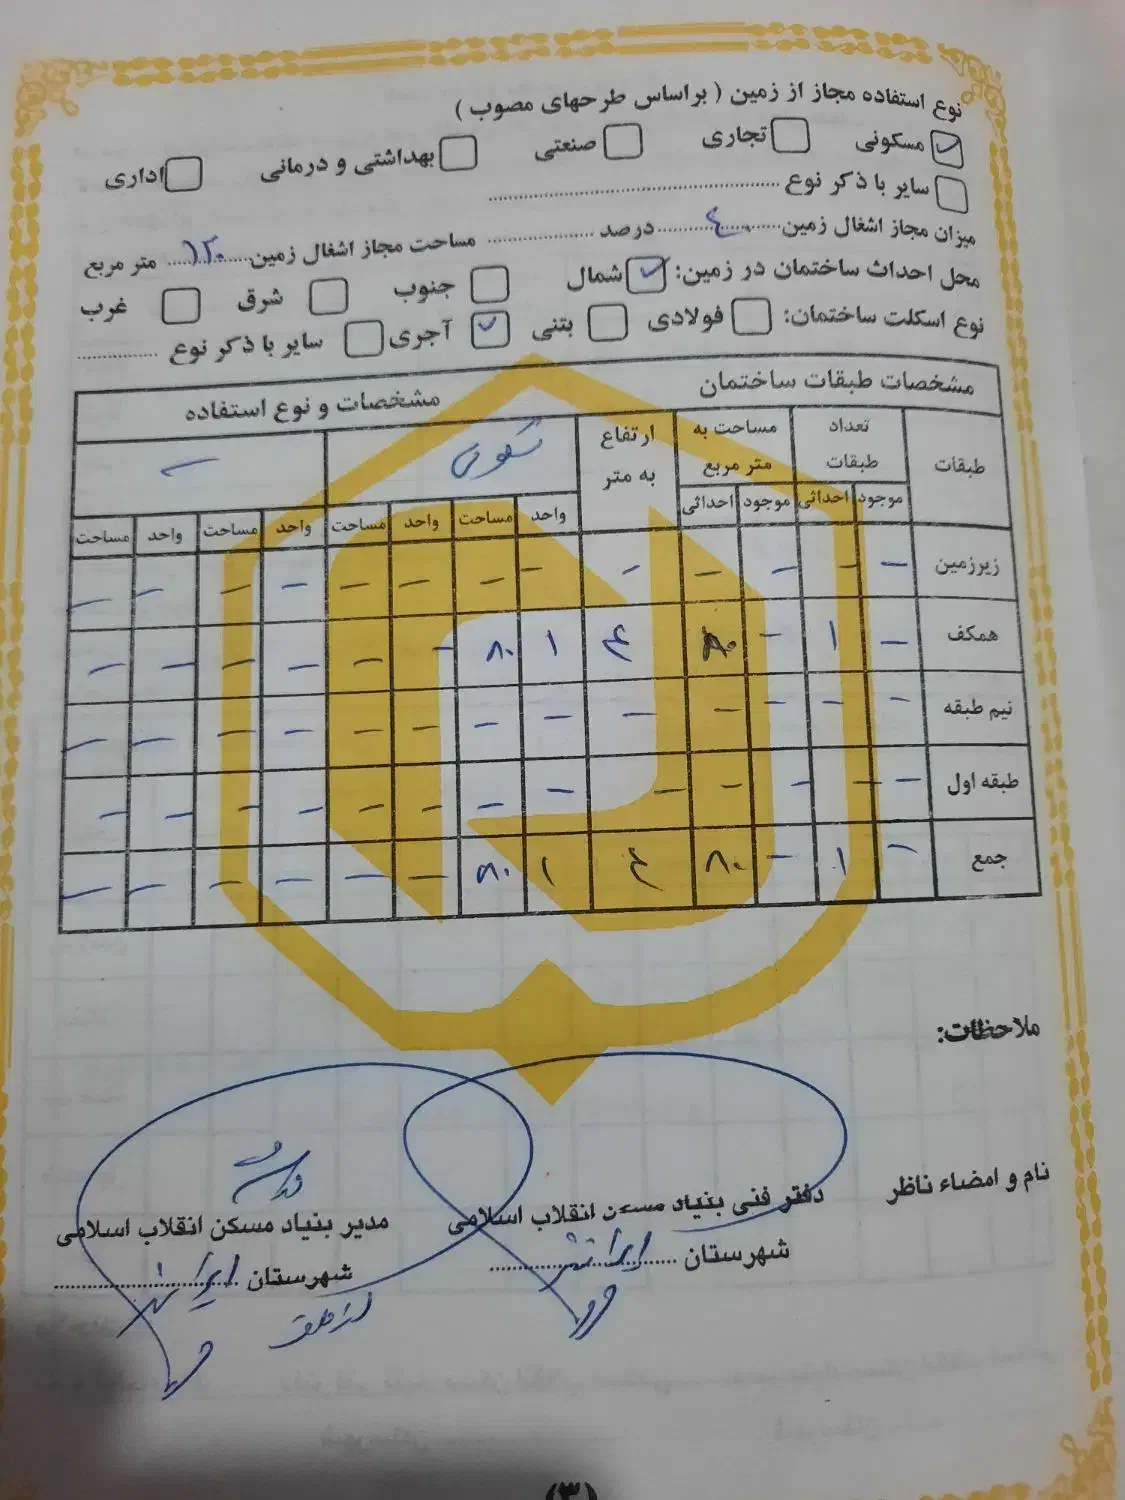 نوع استفاده مجاز از زمین ( براساس طرحهای مصوب )
مسکونی تجاری صنعتی بهداشتی و درمانی اداری
سایر با ذکر نوع ........................................
میزان مجاز اشغال زمین........٤٠........درصد ................ مساحت مجاز اشغال زمین........١٢٠........ متر مربع
محل احداث ساختمان در زمین: شمال جنوب شرق غرب
نوع اسکلت ساختمان: فولادی بتنی آجری سایر با ذکر نوع ............
مشخصات طبقات ساختمان مشخصات و نوع استفاده
طبقات تعداد طبقات مساحت به متر مربع ارتفاع به متر مسکونی —
موجود احداثی موجود احداثی واحد مساحت واحد مساحت واحد مساحت واحد مساحت
زیرزمین — — — — — — — — — — — — —
همکف — ١ — ٨٠ ٤ ١ ٨٠ — — — — — —
نیم طبقه — — — — — — — — — — — — —
طبقه اول — — — — — — — — — — — — —
جمع — ١ — ٨٠ ٤ ١ ٨٠ — — — — — —
ملاحظات:
نام و امضاء ناظر
دفتر فنی بنیاد مسکن انقلاب اسلامی
شهرستان ایرانشهر
مدیر بنیاد مسکن انقلاب اسلامی
شهرستان ایرانشهر
(٣)